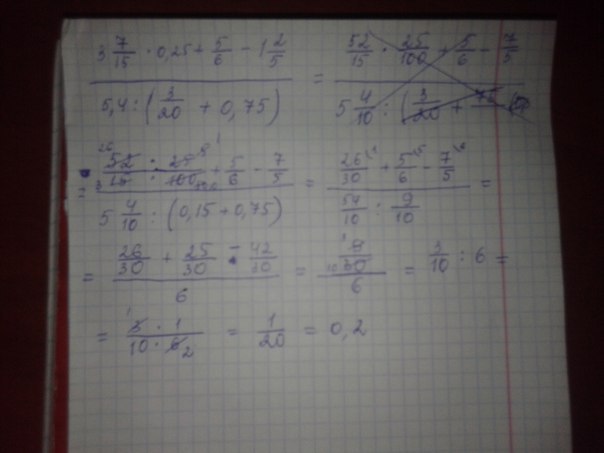 3 7/15 · 0,25 + 5/6 - 1 2/5 / 5,4 : (3/20 + 0,75) = 52/15 · 25/100 + 5/6 - 7/5 / 5 4/10 : (3/20 +
= 52/15 · 25/100 + 5/6 - 7/5 / 5 4/10 : (0,15 + 0,75) = 26/30 + 5/6 - 7/5 / 54/10 : 9/10 =
= 26/30 + 25/30 - 42/30 / 6 = 9/30 / 6 = 3/10 : 6 =
= 3 · 1 / 10 · 6 2 = 1/20 = 0,2